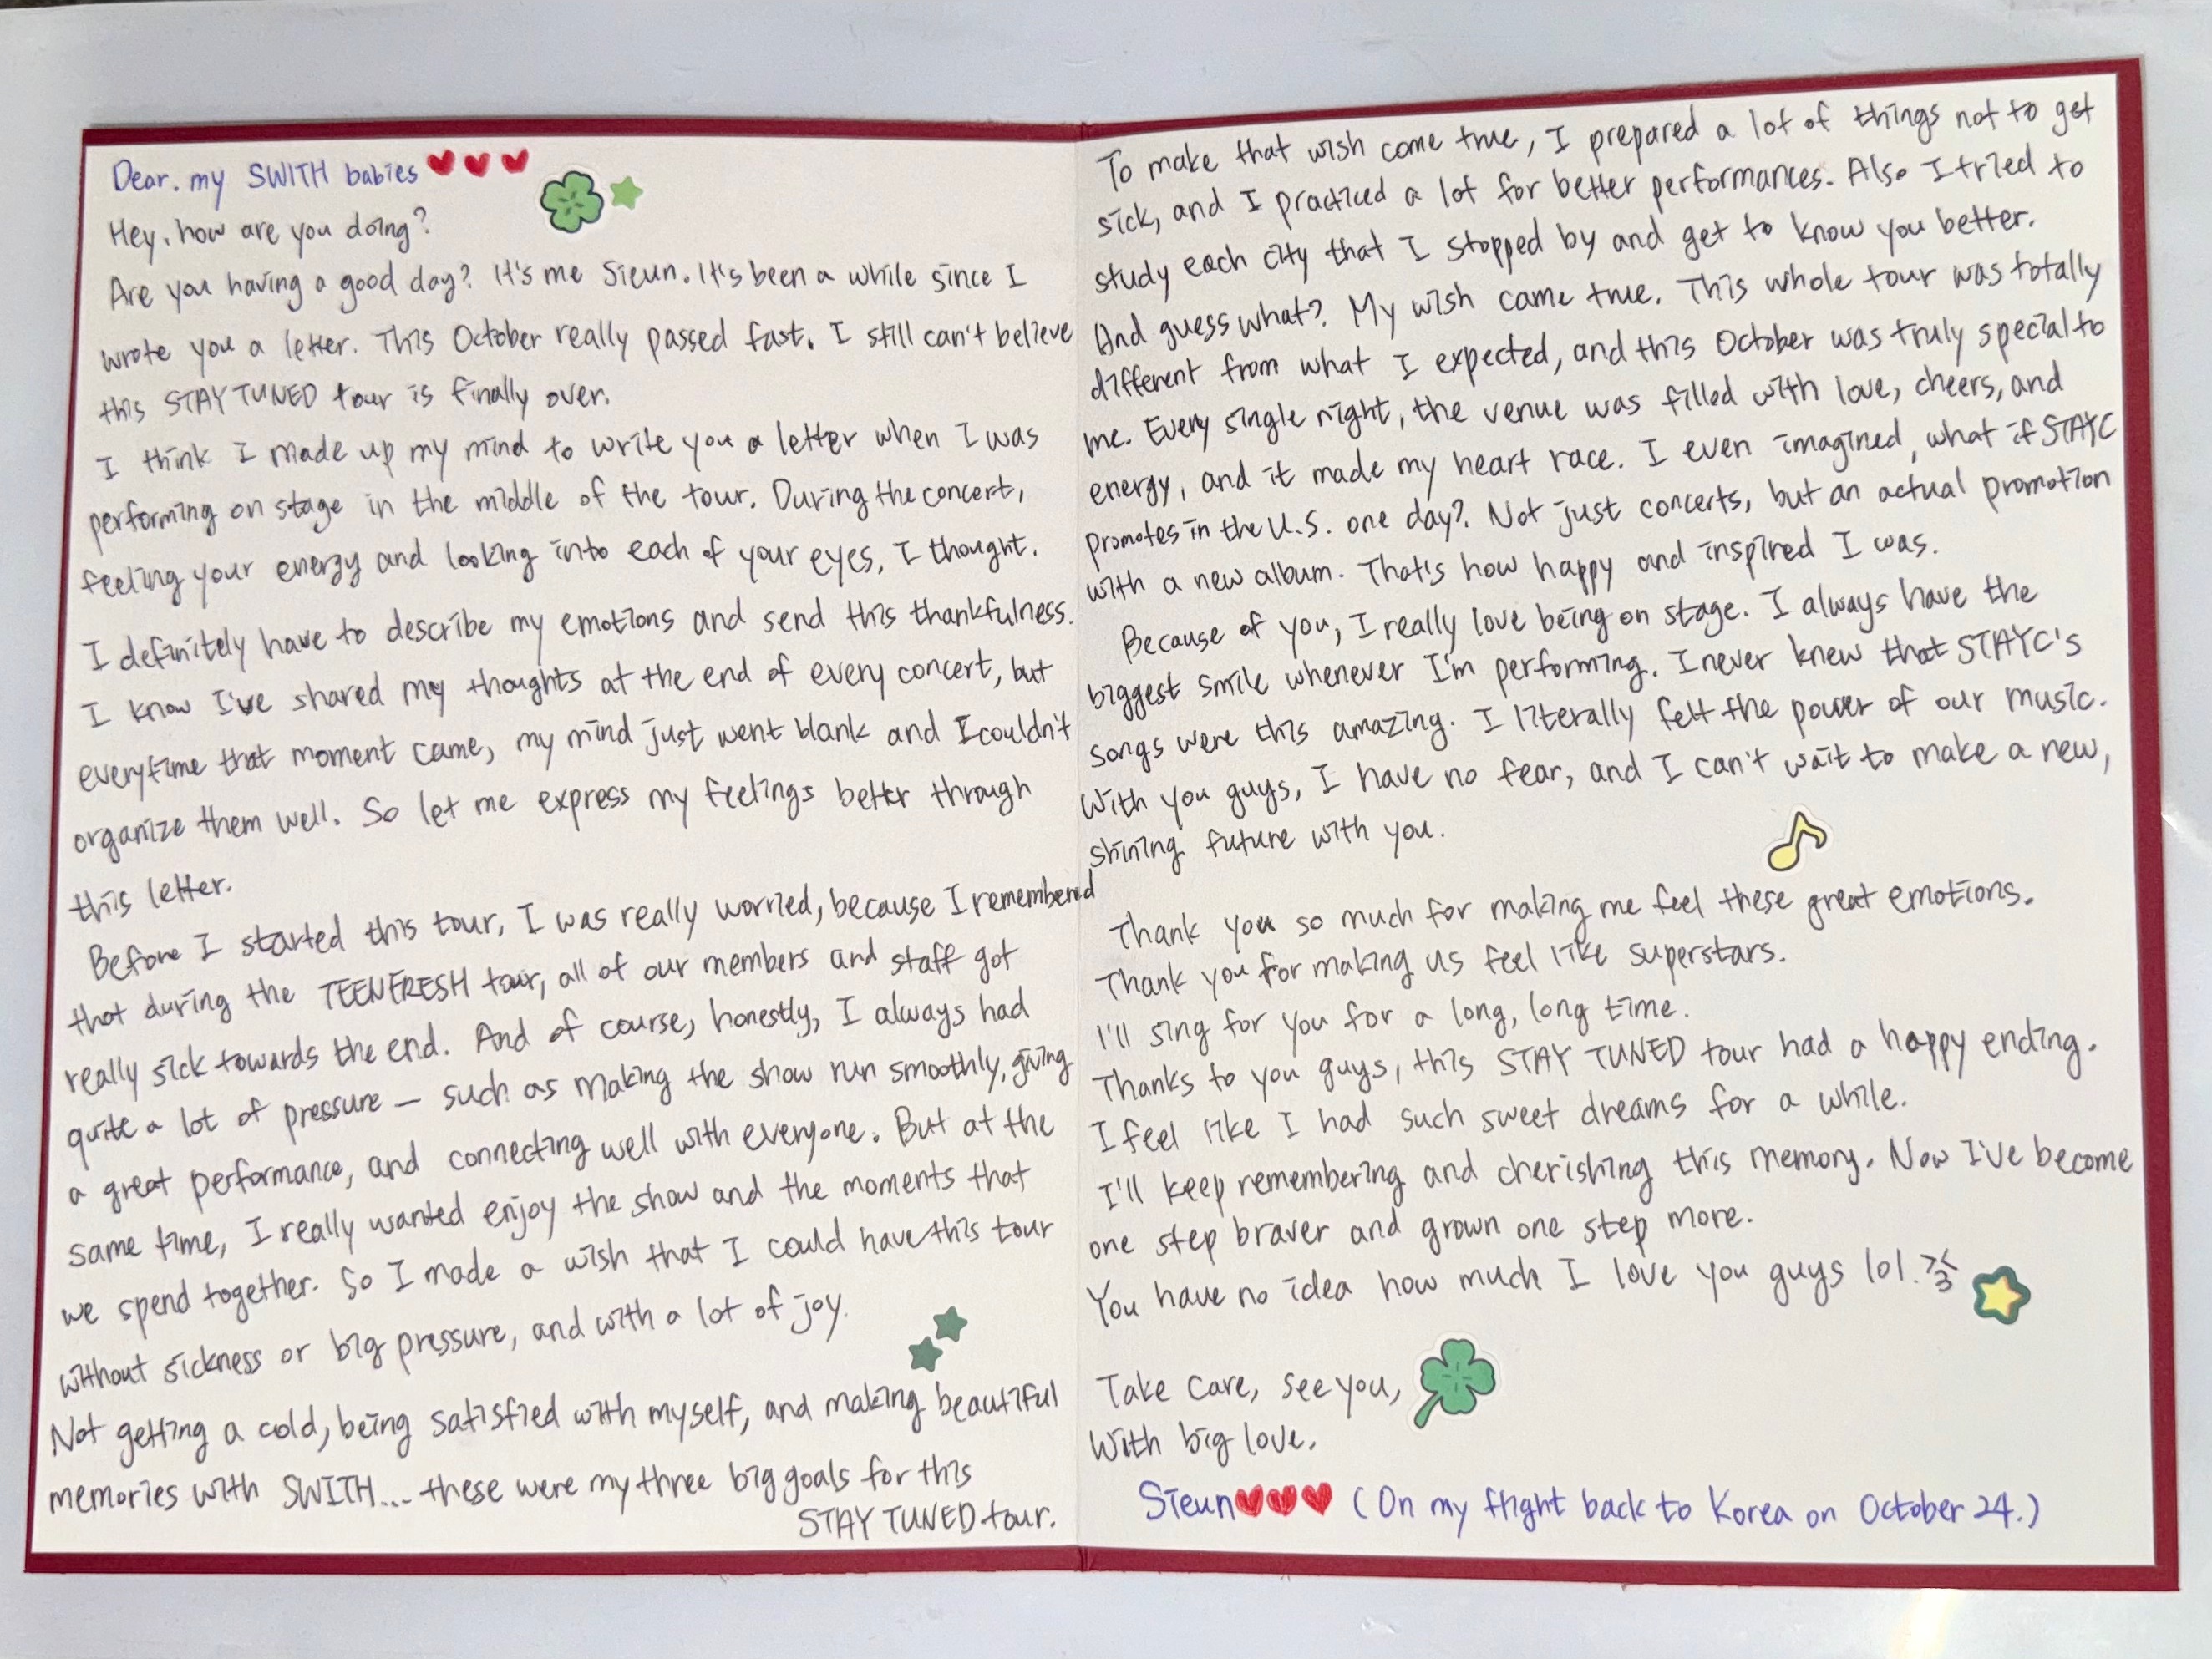 Dear. my SWITH babies
Hey. how are you doing?
Are you having a good day? It's me Sieun. It's been a while since I
wrote you a letter. This October really passed fast. I still can't believe
this STAY TUNED tour is finally over.
I think I made up my mind to write you a letter when I was
performing on stage in the middle of the tour. During the concert,
feeling your energy and looking into each of your eyes, I thought.
I definitely have to describe my emotions and send this thankfulness.
I know I've shared my thoughts at the end of every concert, but
everytime that moment came, my mind just went blank and I couldn't
organize them well. So let me express my feelings better through
this letter.
Before I started this tour, I was really worried, because I remembered
that during the TEENFRESH tour, all of our members and staff got
really sick towards the end. And of course, honestly, I always had
quite a lot of pressure — such as making the show run smoothly, giving
a great performance, and connecting well with everyone. But at the
same time, I really wanted enjoy the show and the moments that
we spend together. So I made a wish that I could have this tour
without sickness or big pressure, and with a lot of joy.
Not getting a cold, being satisfied with myself, and making beautiful
memories with SWITH... these were my three big goals for this
STAY TUNED tour.
To make that wish come true, I prepared a lot of things not to get
sick, and I practiced a lot for better performances. Also I tried to
study each city that I stopped by and get to know you better.
And guess what? My wish came true. This whole tour was totally
different from what I expected, and this October was truly special to
me. Every single night, the venue was filled with love, cheers, and
energy, and it made my heart race. I even imagined, what if STAYC
promotes in the U.S. one day? Not just concerts, but an actual promotion
with a new album. That's how happy and inspired I was.
Because of you, I really love being on stage. I always have the
biggest smile whenever I'm performing. I never knew that STAYC's
songs were this amazing. I literally felt the power of our music.
With you guys, I have no fear, and I can't wait to make a new,
shining future with you.
Thank you so much for making me feel these great emotions.
Thank you for making us feel like superstars.
I'll sing for you for a long, long time.
Thanks to you guys, this STAY TUNED tour had a happy ending.
I feel like I had such sweet dreams for a while.
I'll keep remembering and cherishing this memory. Now I've become
one step braver and grown one step more.
You have no idea how much I love you guys lol. >3<
Take care, see you,
With big love.
Sieun (On my flight back to Korea on October 24.)